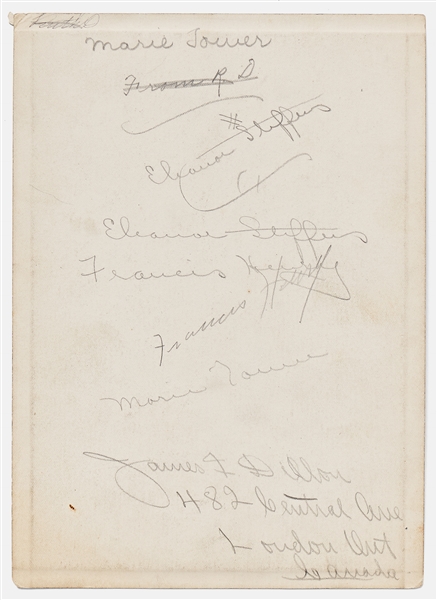 Marie Tower
From R D
Eleanor Steffens
Eleanor Steffens
Francis
Francis
Marie Tower
James F Dillon
482 Central Ave
London Ont
Canada